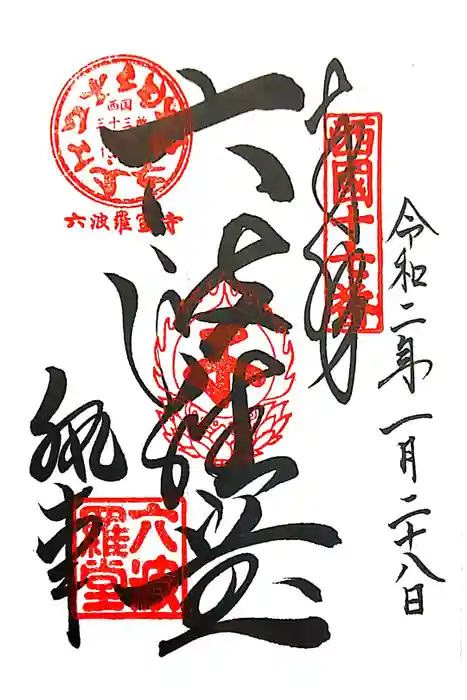 令和二年一月二十八日
奉拝
西国十七番
六波羅堂
西国
三十三所
六波羅蜜寺
六波羅堂